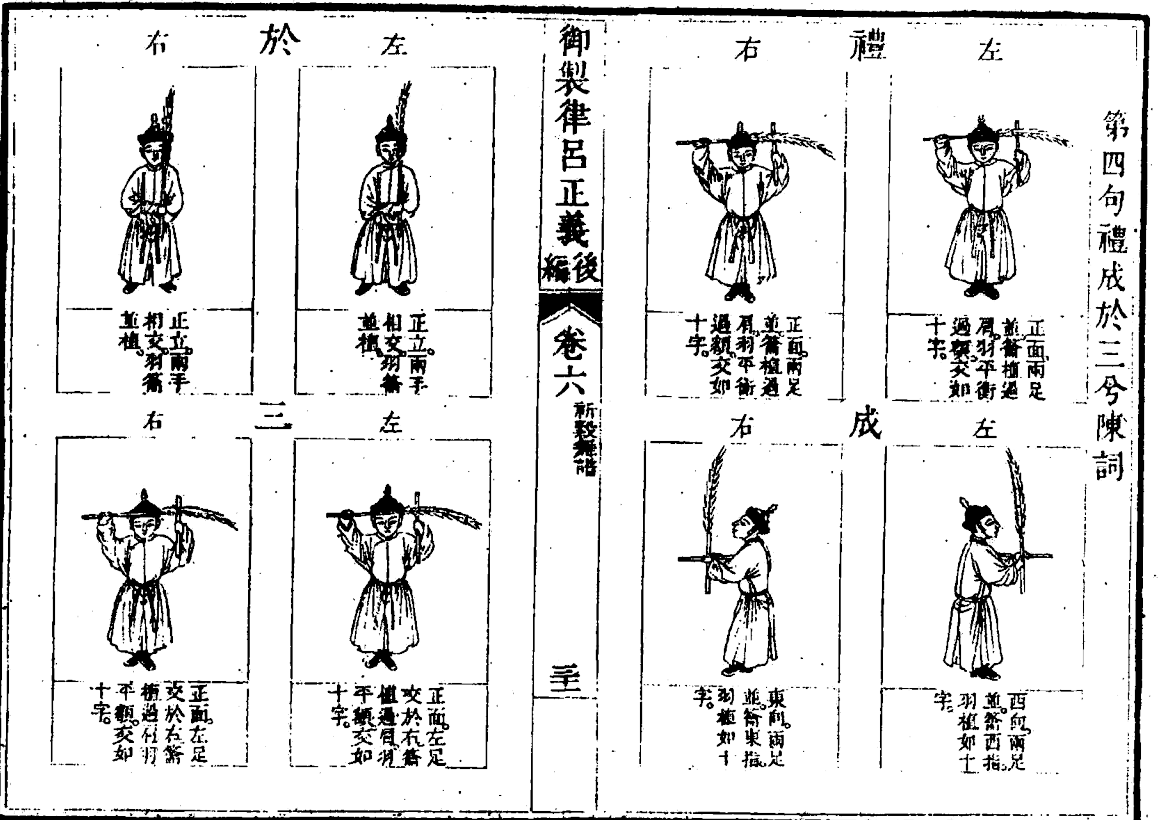 第四句禮成於三兮陳詞
禮
左
正面兩足
並籥植過
肩羽平衡
過額交如
十字
右
正面兩足
並籥植過
肩羽平衡
過額交如
十字
成
左
西向兩足
並籥西指
羽植如十
字
右
東向兩足
並籥東指
羽植如十
字
御製律呂正義後編
卷六
祈穀舞譜
於
左
正立兩手
相交羽籥
並植
右
正立兩手
相交羽籥
並植
三
左
正面左足
交於右籥
植過肩羽
平額交如
十字
右
正面左足
交於右籥
植過肩羽
平額交如
十字